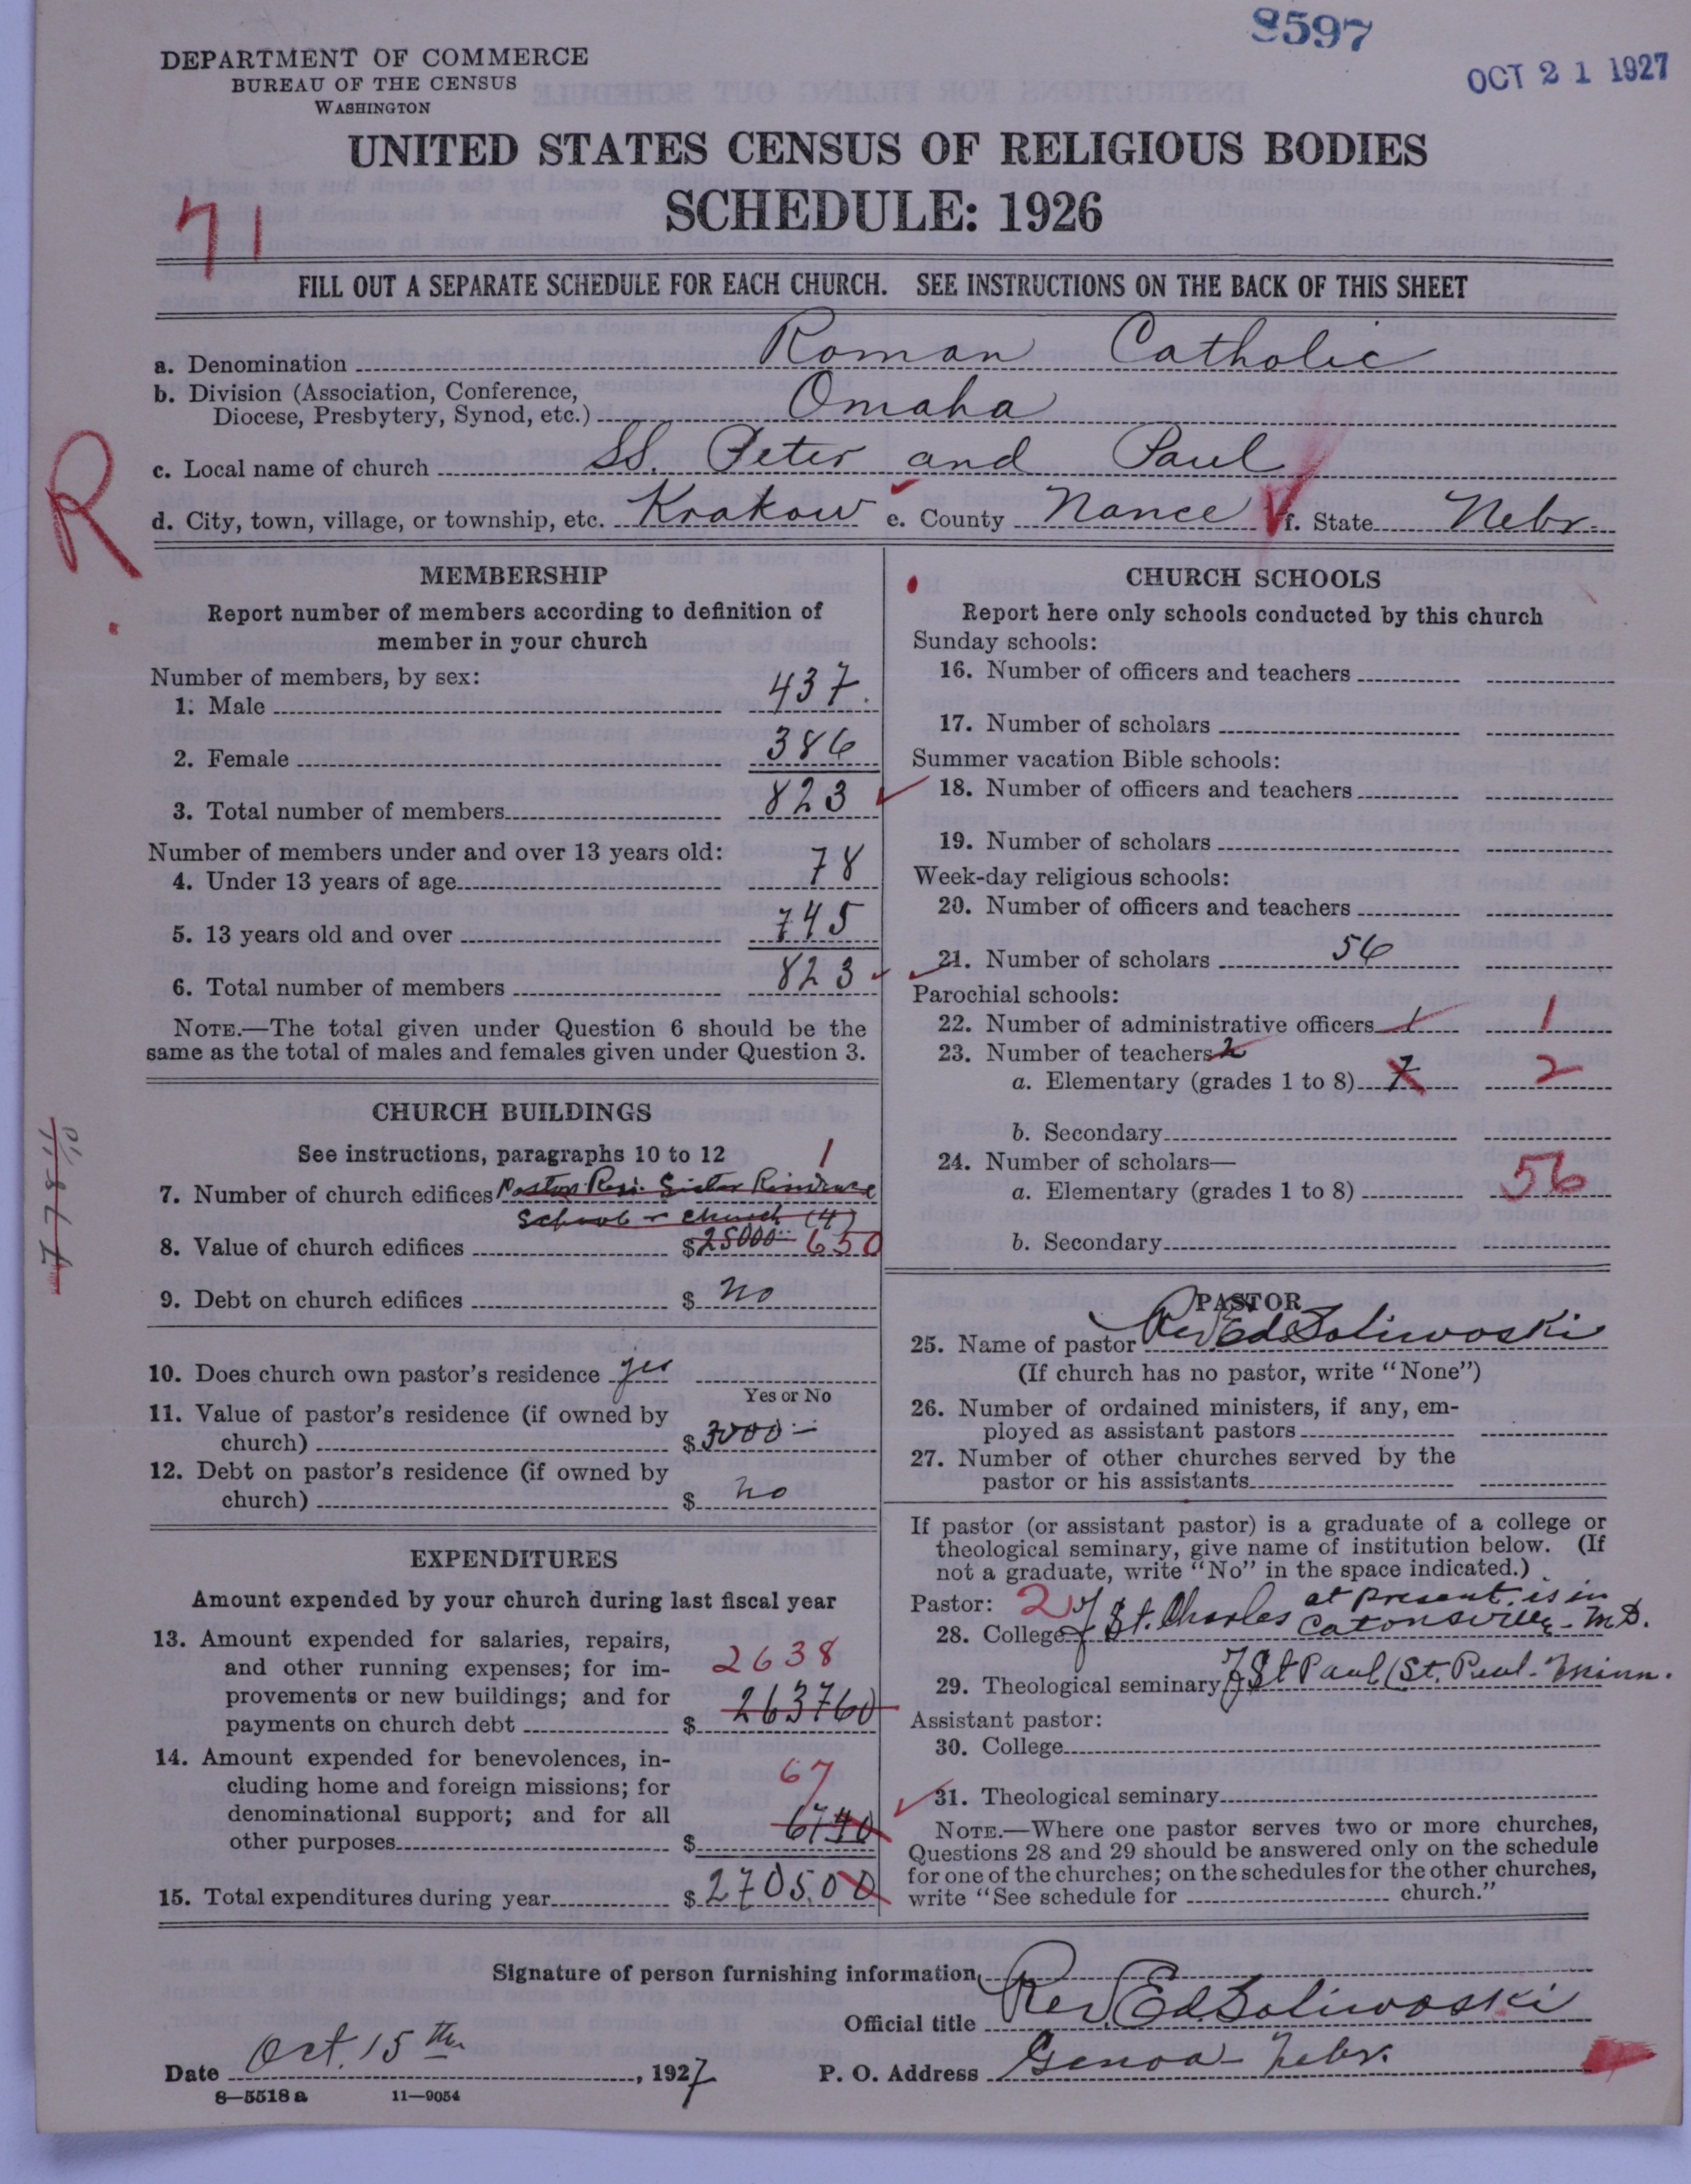 8597
OCT 21 1927
DEPARTMENT OF COMMERCE
BUREAU OF THE CENSUS
WASHINGTON
UNITED STATES CENSUS OF RELIGIOUS BODIES
SCHEDULE: 1926
71
FILL OUT A SEPARATE SCHEDULE FOR EACH CHURCH. SEE INSTRUCTIONS ON THE BACK OF THIS SHEET
a. Denomination Roman Catholic
b. Division (Association, Conference,
Diocese, Presbytery, Synod, etc.) Omaha
c. Local name of church SS. Peter and Paul
R
d. City, town, village, or township, etc. Krakow e. County Nance f. State Nebr.
MEMBERSHIP
Report number of members according to definition of
member in your church
Number of members, by sex:
1. Male 437.
2. Female 386
3. Total number of members 823
Number of members under and over 13 years old:
4. Under 13 years of age 78
5. 13 years old and over 745
6. Total number of members 823
NOTE.—The total given under Question 6 should be the
same as the total of males and females given under Question 3.
CHURCH BUILDINGS
See instructions, paragraphs 10 to 12 1
7. Number of church edifices Pastor Resi. Sister Residence
School - church (4)
8. Value of church edifices $25000 650
9. Debt on church edifices $ no
10. Does church own pastor's residence yes
Yes or No
11. Value of pastor's residence (if owned by
church) $3000-
12. Debt on pastor's residence (if owned by
church) $ no
EXPENDITURES
Amount expended by your church during last fiscal year
13. Amount expended for salaries, repairs,
and other running expenses; for im- 2638
provements or new buildings; and for
payments on church debt $ 263760
14. Amount expended for benevolences, in-
cluding home and foreign missions; for 67
denominational support; and for all
other purposes $ 6740
15. Total expenditures during year $2705.00
CHURCH SCHOOLS
Report here only schools conducted by this church
Sunday schools:
16. Number of officers and teachers
17. Number of scholars
Summer vacation Bible schools:
18. Number of officers and teachers
19. Number of scholars
Week-day religious schools:
20. Number of officers and teachers
21. Number of scholars 56
Parochial schools:
22. Number of administrative officers 1 1
23. Number of teachers 2
a. Elementary (grades 1 to 8) 7 2
b. Secondary
24. Number of scholars—
a. Elementary (grades 1 to 8) 56
b. Secondary
PASTOR
25. Name of pastor Rev Ed Soliwoski
(If church has no pastor, write "None")
26. Number of ordained ministers, if any, em-
ployed as assistant pastors
27. Number of other churches served by the
pastor or his assistants
If pastor (or assistant pastor) is a graduate of a college or
theological seminary, give name of institution below. (If
not a graduate, write "No" in the space indicated.)
Pastor: 2 at present is in
28. College of St. Charles Catonsville - MD.
29. Theological seminary of St Paul (St. Paul - Minn.
Assistant pastor:
30. College
31. Theological seminary
NOTE.—Where one pastor serves two or more churches,
Questions 28 and 29 should be answered only on the schedule
for one of the churches; on the schedules for the other churches,
write "See schedule for church."
Signature of person furnishing information
Official title Rev. Ed. Soliwoski
Date Oct. 15th, 1927 P. O. Address Genoa - Nebr.
8—5518 a 11—9054